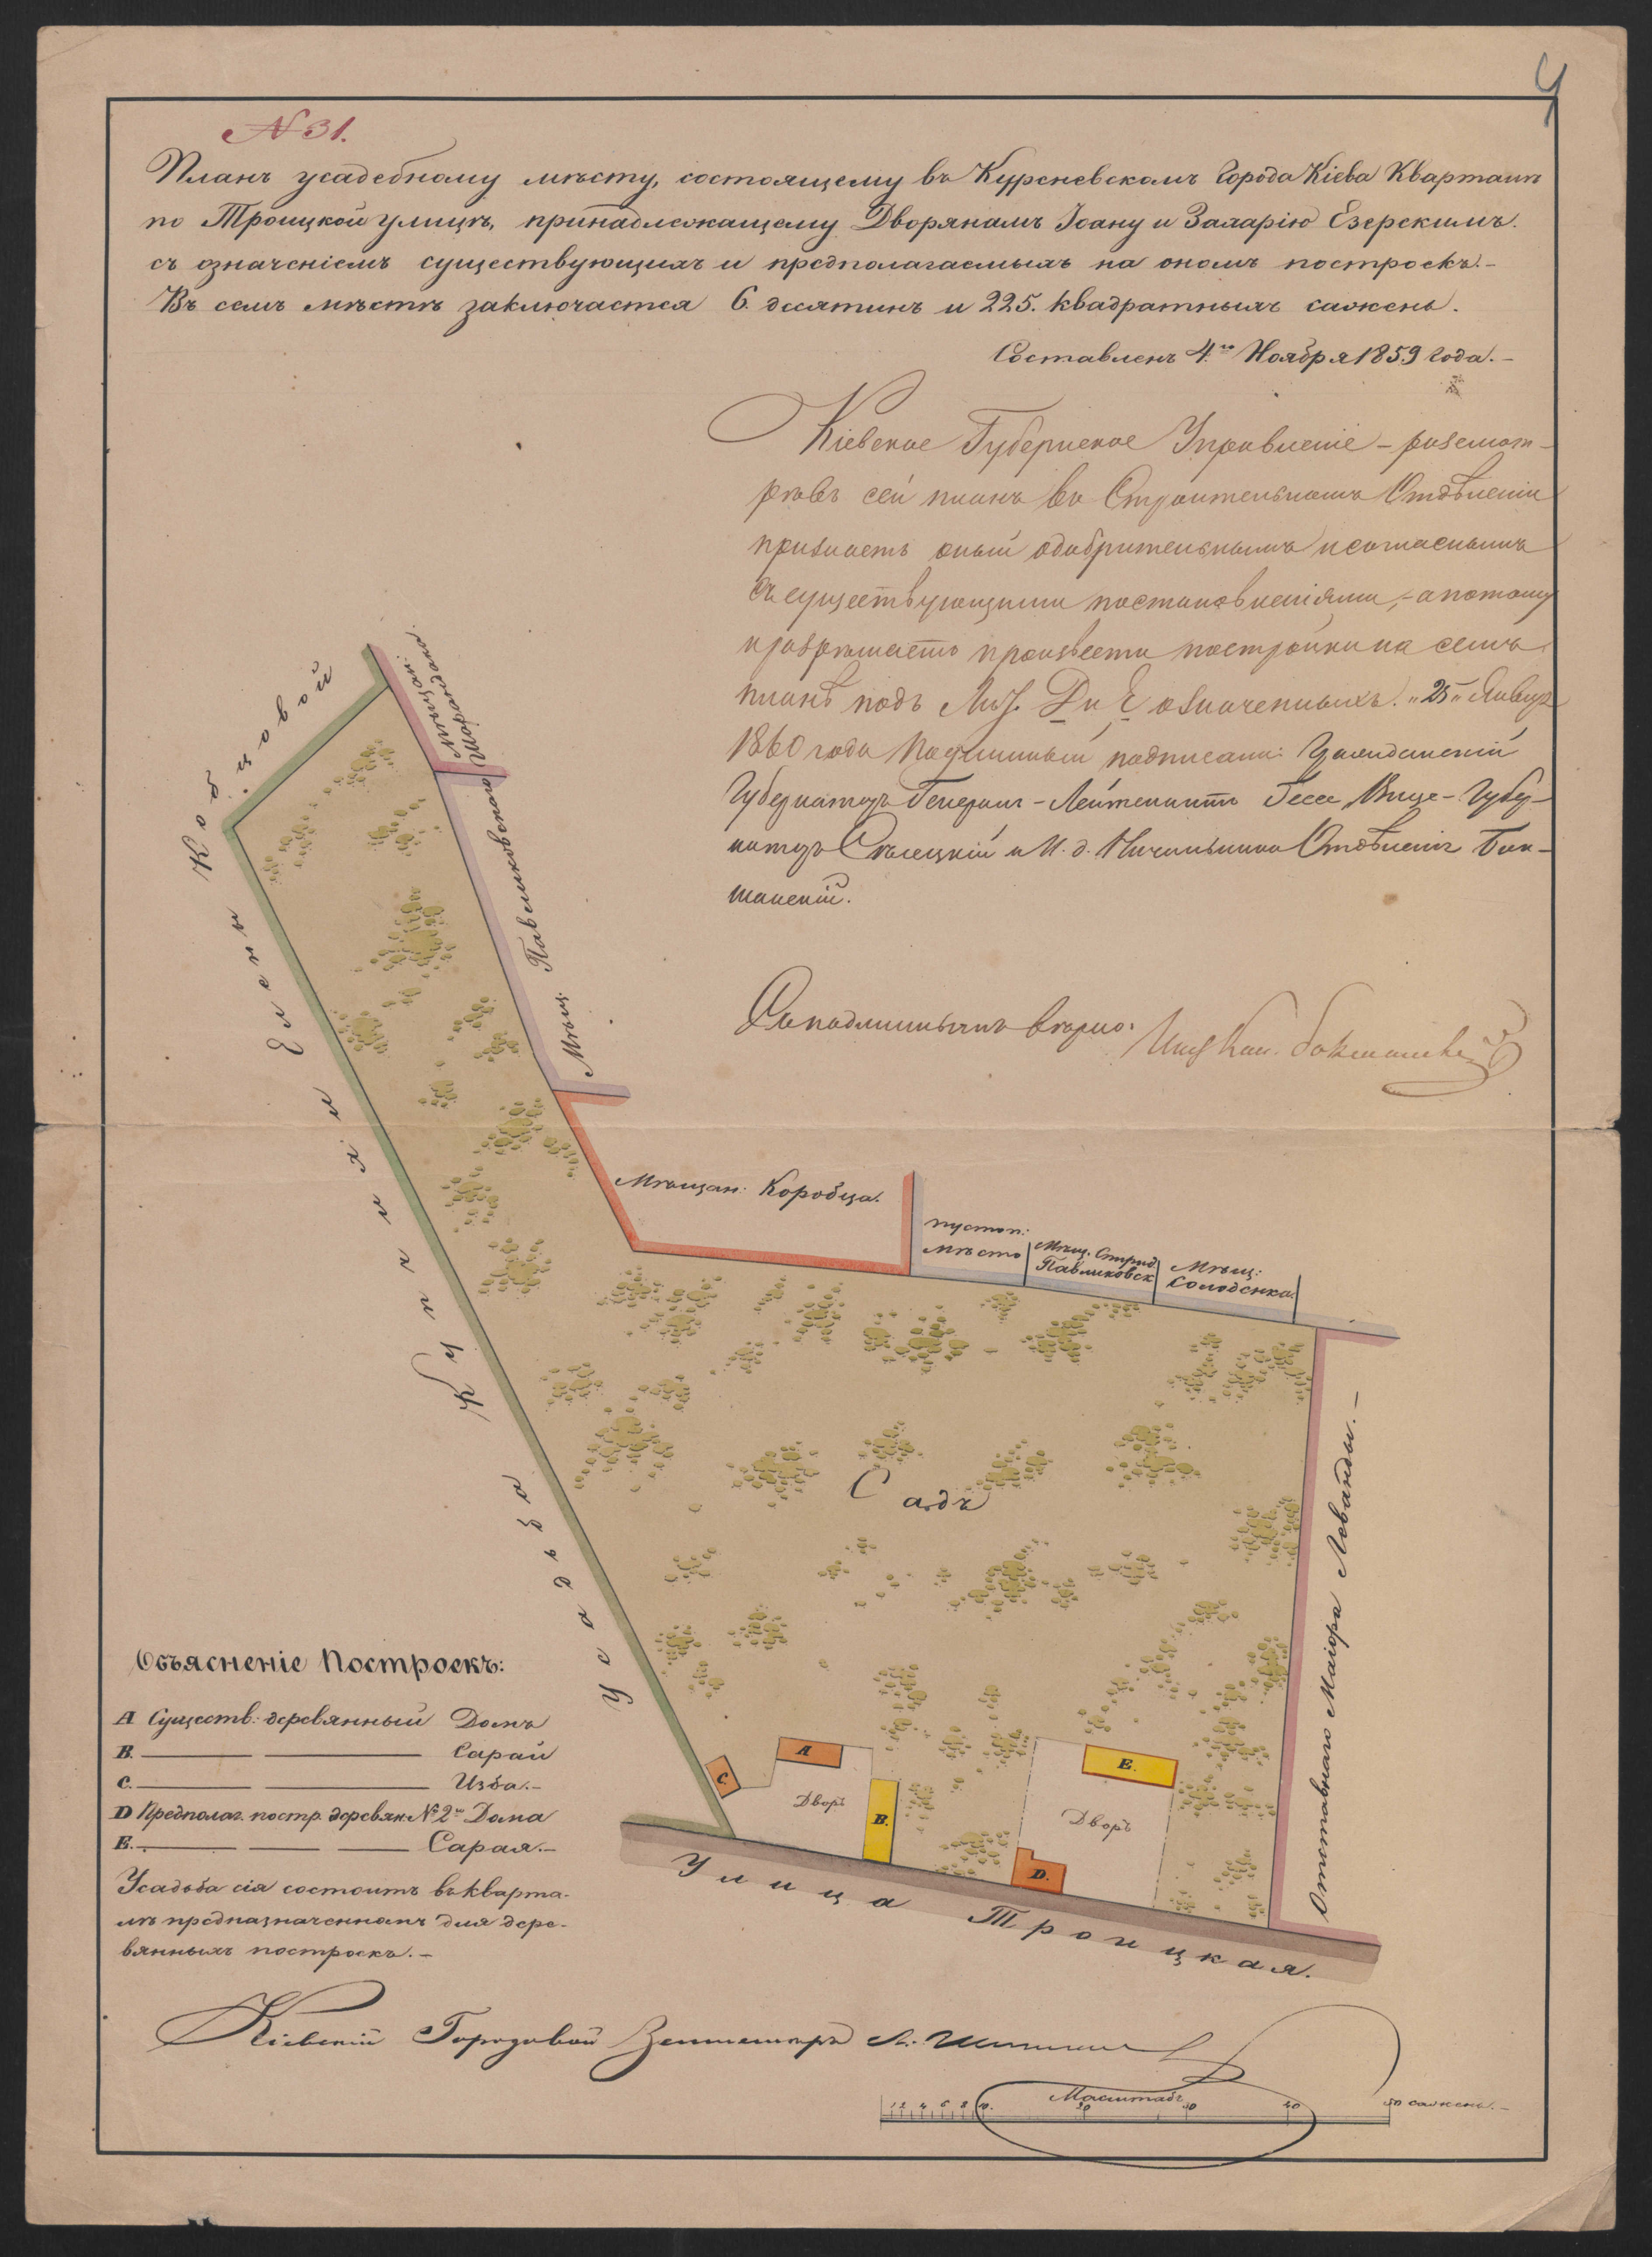 N 31.
Планъ усадебному мѣсту, состоящему въ Куреневскомъ Города Кіева Кварталѣ
по Троицкой улицѣ, принадлежащему Дворянамъ Іоану и Захарію Езерскимъ.
съ означеніемъ существующихъ и предполагаемыхъ на ономъ построекъ.-
Въ семъ мѣстѣ заключается 6. десятинъ и 225. квадратныхъ сажень.
Составленъ 4.го Ноября 1859 года.-
Кіевское Губернское Управленіе - разсмот-
рѣвъ сей планъ въ Строительномъ Отдѣленіи
признаетъ оный одобрительнымъ и согласнымъ
съ существующими постановленіями, - а потому
и разрѣшаетъ произвести постройки на семъ
планѣ подъ Лит. D и E означенныхъ. "25" Января
1860 года Подлинный подписали: Гражданскій
Губернаторъ Генералъ-Лейтенантъ Гессе, Вице-Губер-
наторъ Сѣлецкій и И. д. Начальника Отдѣленія Бак-
шанскій.
Съ подлиннымъ вѣрно:
Мѣщан:
Шарандака.
Мѣщ. Павликовского
Мѣщан: Коробца.
пустоп:
мѣсто
Мѣщ. Спирид
Павликовск
Мѣщ:
Солоденка.
Усадьба Купчихи Елены Кобцовой
Отставного Маіора Леванды.-
Садъ
A
B.
C.
D.
E.
Дворъ
Дворъ
Улица Троицкая.
Объясненіе Построекъ:
A Существ: деревянный Домъ
B. Сарай
C. Изба.-
D Предполаг. постр. деревян. № 2го Дома
E. Сарая.-
Усадьба сія состоитъ въ кварта-
лѣ предназначенномъ для дере-
вянныхъ построекъ.-
Кіевскій Городовой Землемѣръ
Масштабъ
1 2 4 6 8 10. 20 30 40 50 сажень.-